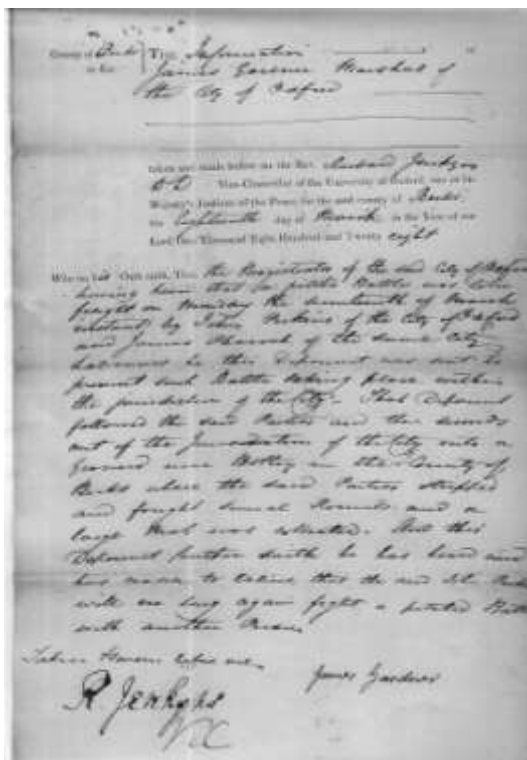 County of Berks THE Information of
to Wit. James Gardner Marshal of
the City of Oxford
taken and made before me the Rev. Richard Jenkyns
D.D. Vice-Chancellor of the University of Oxford, one of his
Majesty's Justices of the Peace for the said county of Berks
the Eighteenth day of March in the Year of our
Lord One Thousand Eight Hundred and Twenty eight
Who on his Oath saith, That the Magistrates of the said City of Oxford
having been that a pitched Battle was to be
fought on Monday the seventeenth of March
instant by John Perkins of the City of Oxford
and James of the same City
he this Deponent was sent to
prevent such Battle taking place within
the jurisdiction of the City. That Deponent
followed the said Parties and their seconds
out of the Jurisdiction of the City into a
Ground near Botley in the County of
Berks where the said Parties stripped
and fought several Rounds and a
large Mob was collected. And this
Deponent further saith he has heard and
has reason to believe that the said
will ere long again fight a pitched Battle
with another Person
Taken & Sworn before me
James Gardner
R. Jenkyns
VC